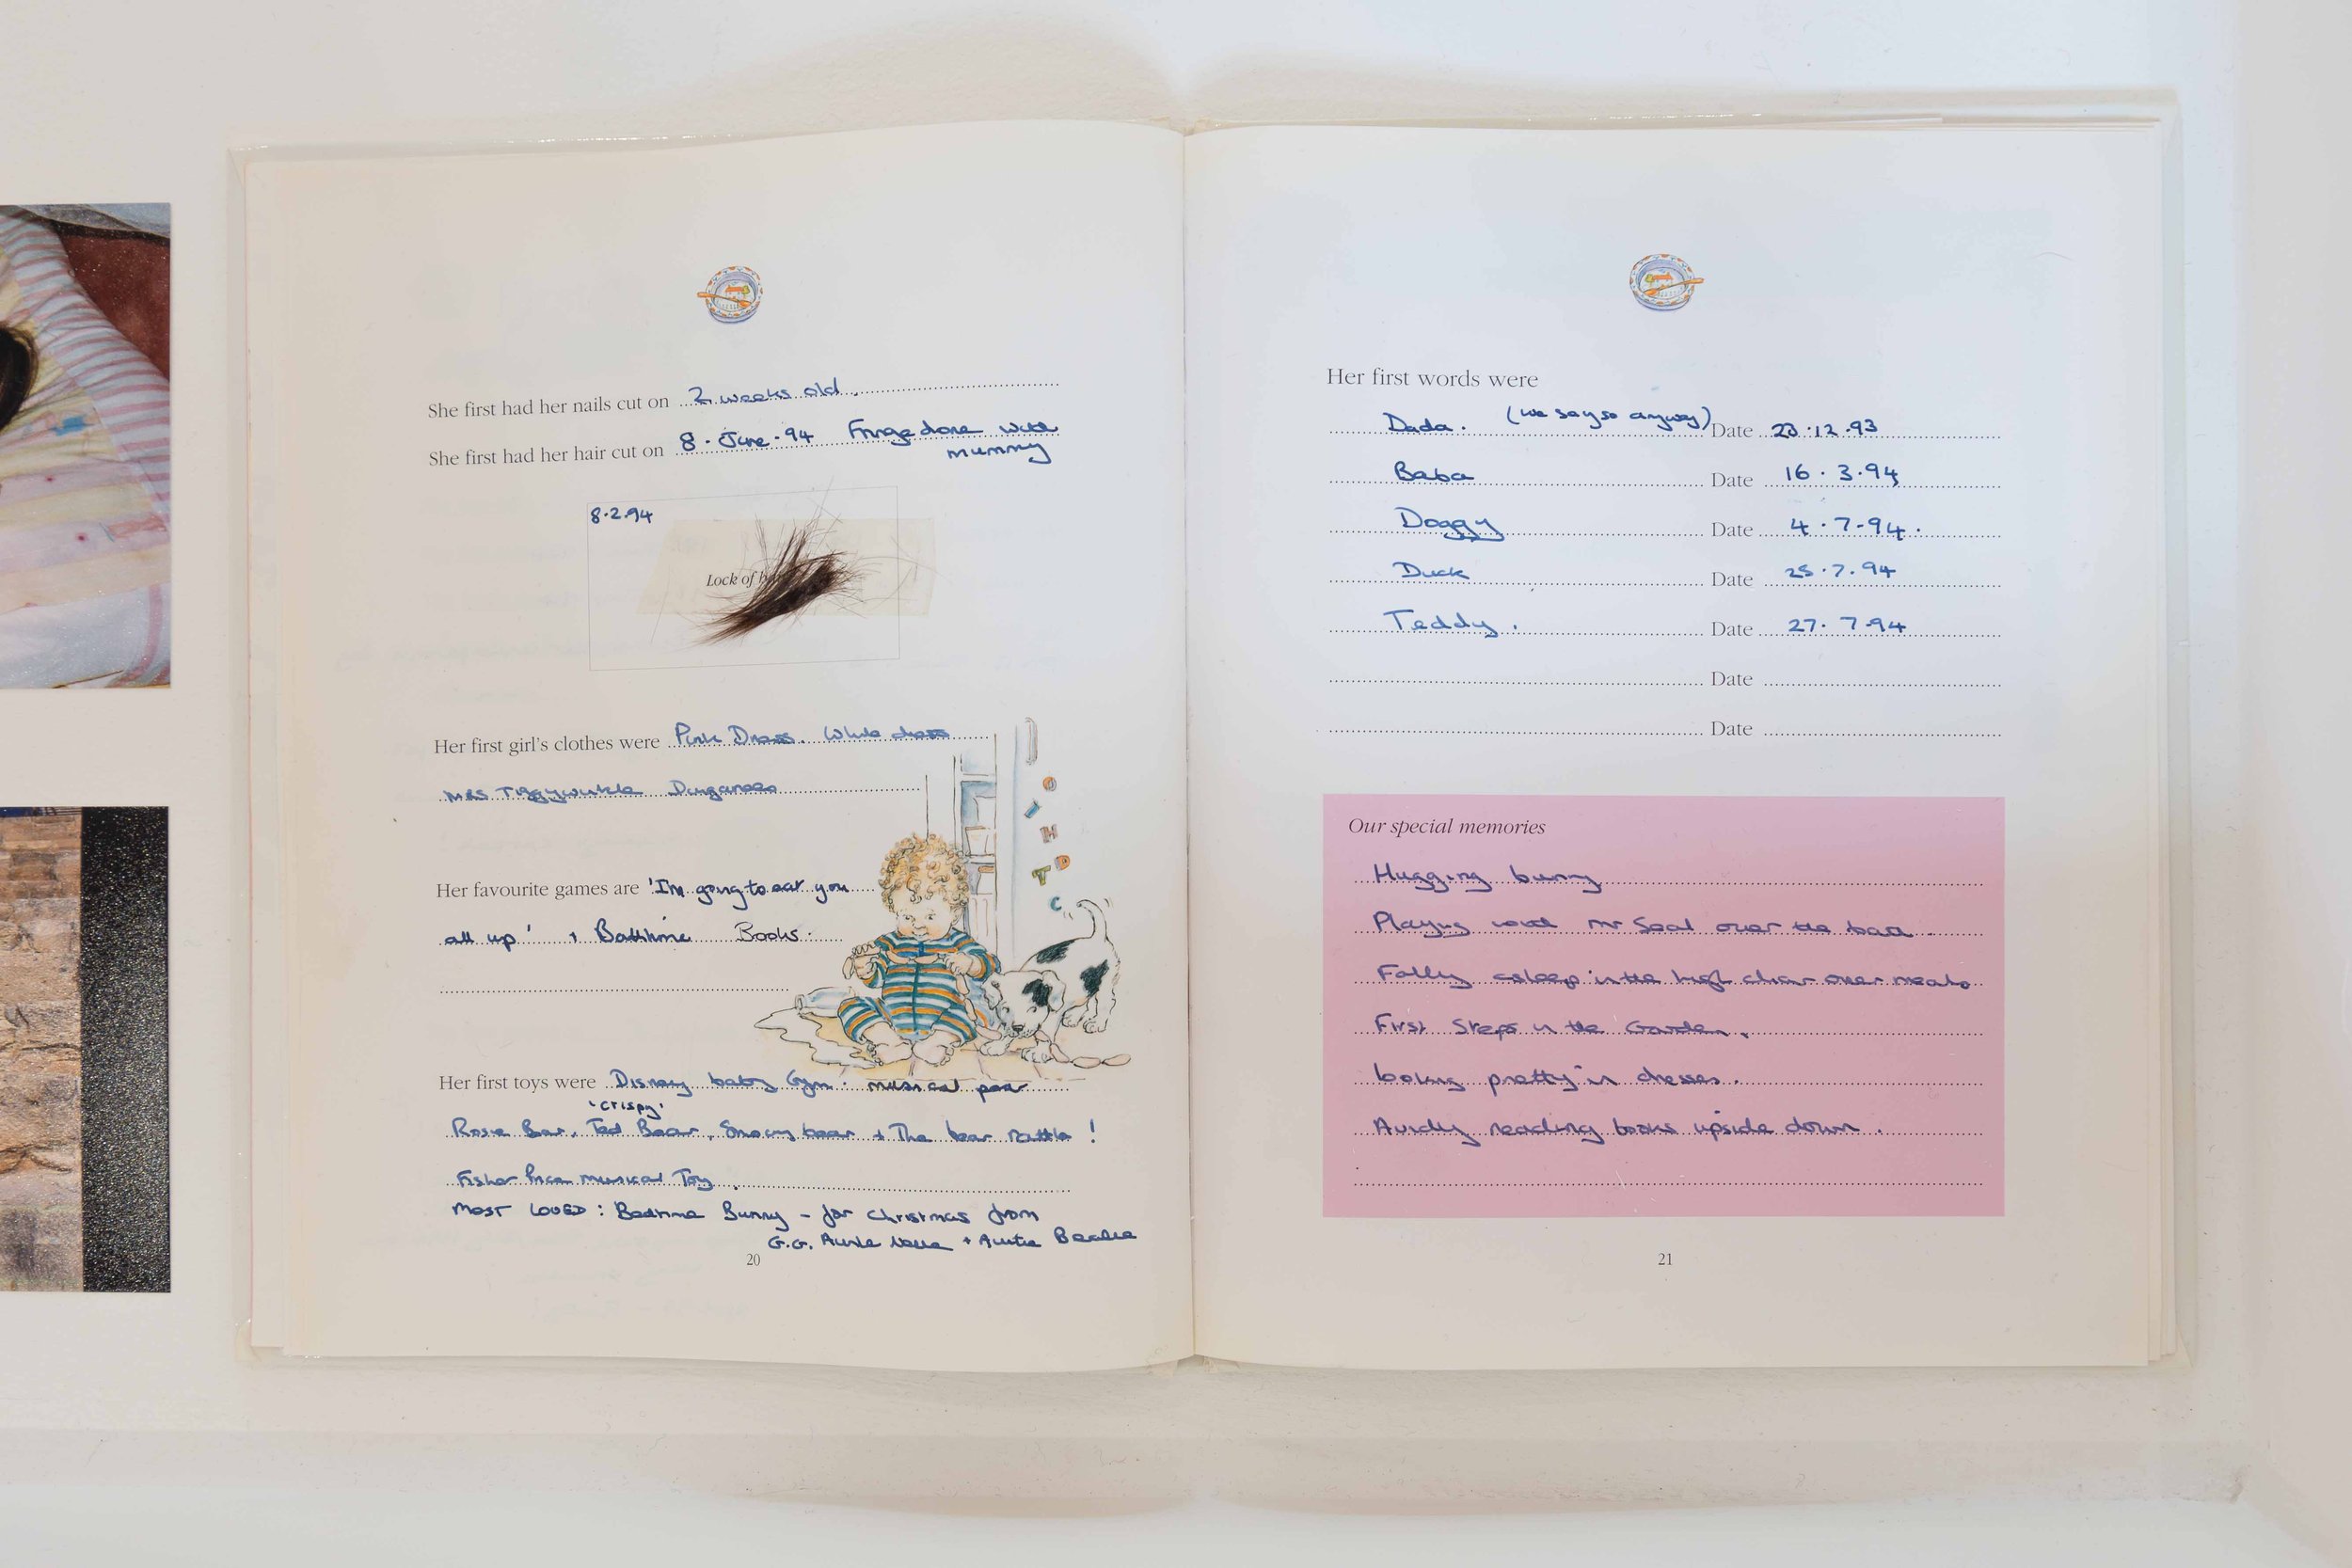 She first had her nails cut on 2 weeks old
She first had her hair cut on 8·June·94 Fringe done with
mummy
8·2·94
Lock of
Her first girl's clothes were Pink Dress. White dress
Mrs Tiggywinkle Dungarees
Her favourite games are 'I'm going to eat you
all up' + Bathtime Books.
Her first toys were Disney baby Gym. musical pear
'crispy'
Rosie Bear, Ted Bear, Snowy bear + The bear rattle!
Fisher Price musical Toy.
MOST LOVED: Bedtime Bunny - for christmas from
G.G. Auntie + Auntie
20
Her first words were
Dada. (we say so anyway) Date 23·12·93
Baba Date 16·3·94
Doggy Date 4·7·94·
Duck Date 25·7·94
Teddy. Date 27·7·94
Date
Date
Our special memories
Hugging bunny
Playing with Mr Seal over the bath.
Falling asleep in the high chair over meals
First Steps in the Garden.
looking pretty in dresses.
Avidly reading books upside down.
21
J
O
I
H
D
T
C